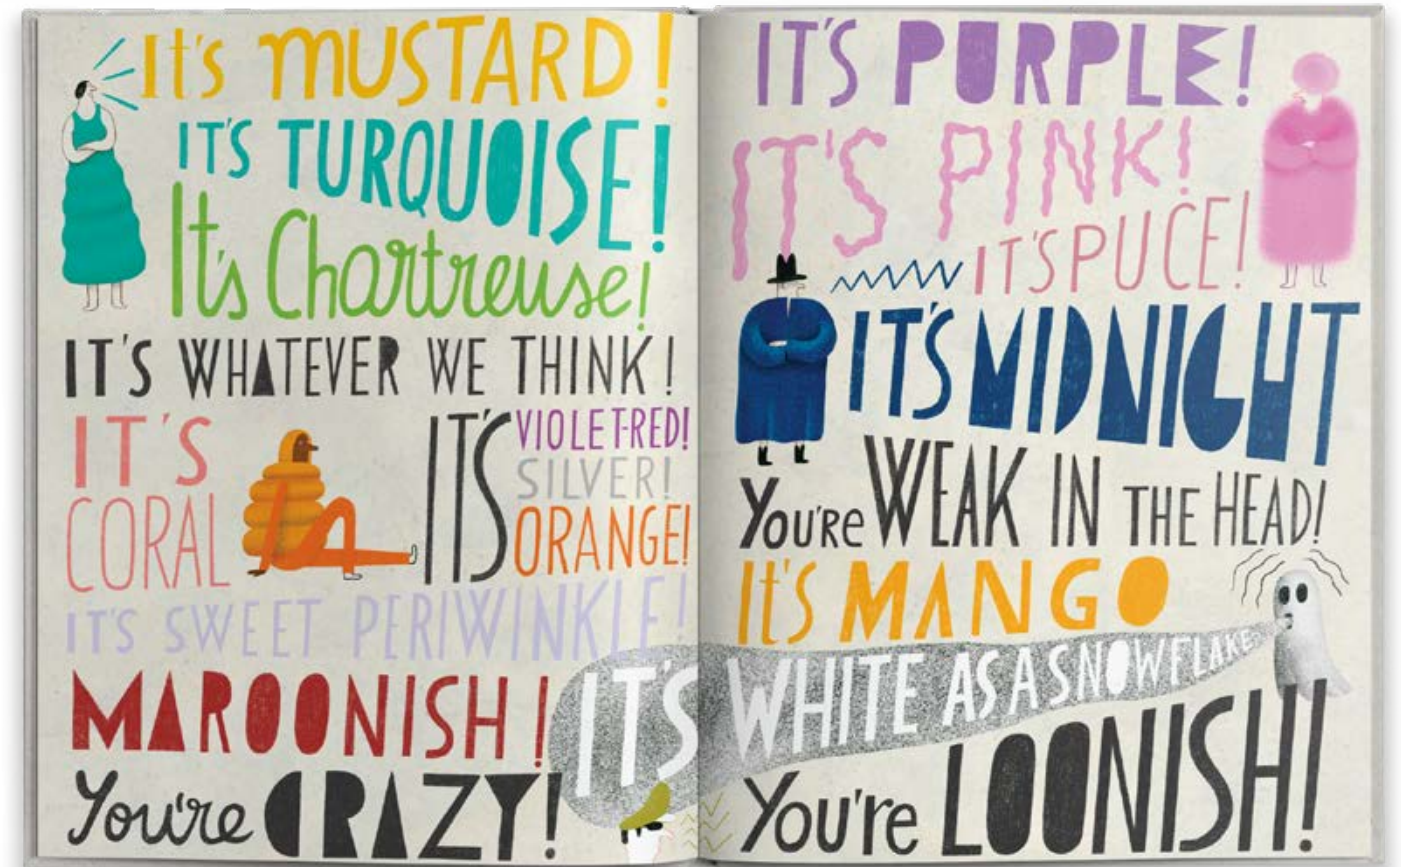 It's MUSTARD!
IT'S TURQUOISE!
It's Chartreuse!
IT'S WHATEVER WE THINK!
IT'S
CORAL
IT'S VIOLET-RED!
SILVER!
ORANGE!
IT'S SWEET PERIWINKLE!
MAROONISH!
You're CRAZY!
IT'S PURPLE!
IT'S PINK!
IT'S PUCE!
IT'S MIDNIGHT
You're WEAK IN THE HEAD!
It'S MANGO
IT'S WHITE AS A SNOWFLAKE
You're LOONISH!